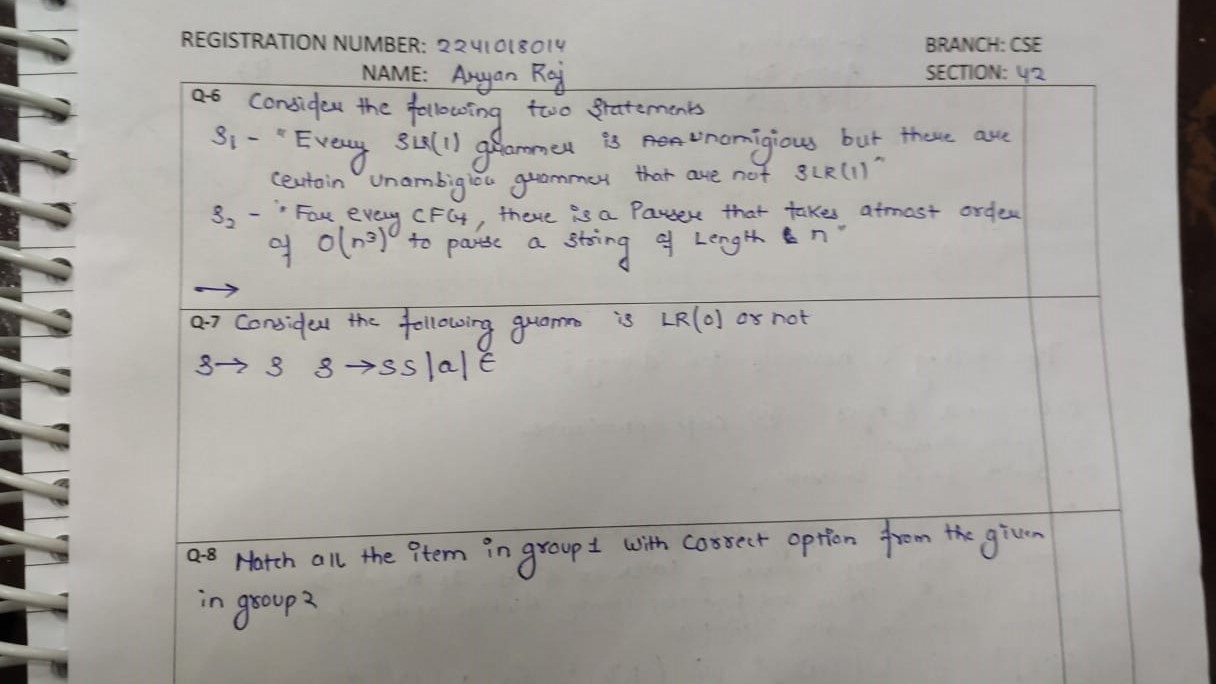 REGISTRATION NUMBER: 2241018014 BRANCH: CSE
NAME: Aryan Raj SECTION: 42
Q-6 Consider the following two Statements
S₁ - "Every SLR(1) grammer is unamigious but there are
certain unambigiou grammer that are not SLR(1)"
S₂ - "For every CFG, there is a Parser that takes atmost order
of O(n³) to parse a string of Length n"
→
Q-7 Consider the following gramm is LR(0) or not
S → S S → SS|a|ε
Q-8 Match all the item in group 1 with correct option from the given
in group 2